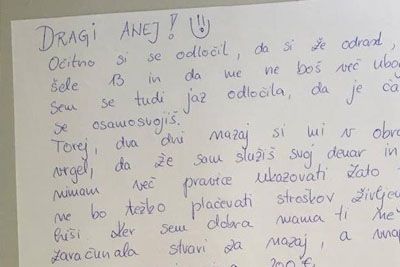 DRAGI ANEJ!
Očitno si se odločil, da si že odrasl,
šele 13 in da me ne boš več ubog
sem se tudi jaz odločila, da je ča
se osamosvojiš.
Torej, dva dni nazaj si mi v obra
vrgel, da že sam služiš svoj denar in
nimam več pravice ukazovati zato t
ne bo težko plačevati stroškov življen
hiši. Ker sem dobra mama ti ne
zaračunala stvari za nazaj, a
200 €